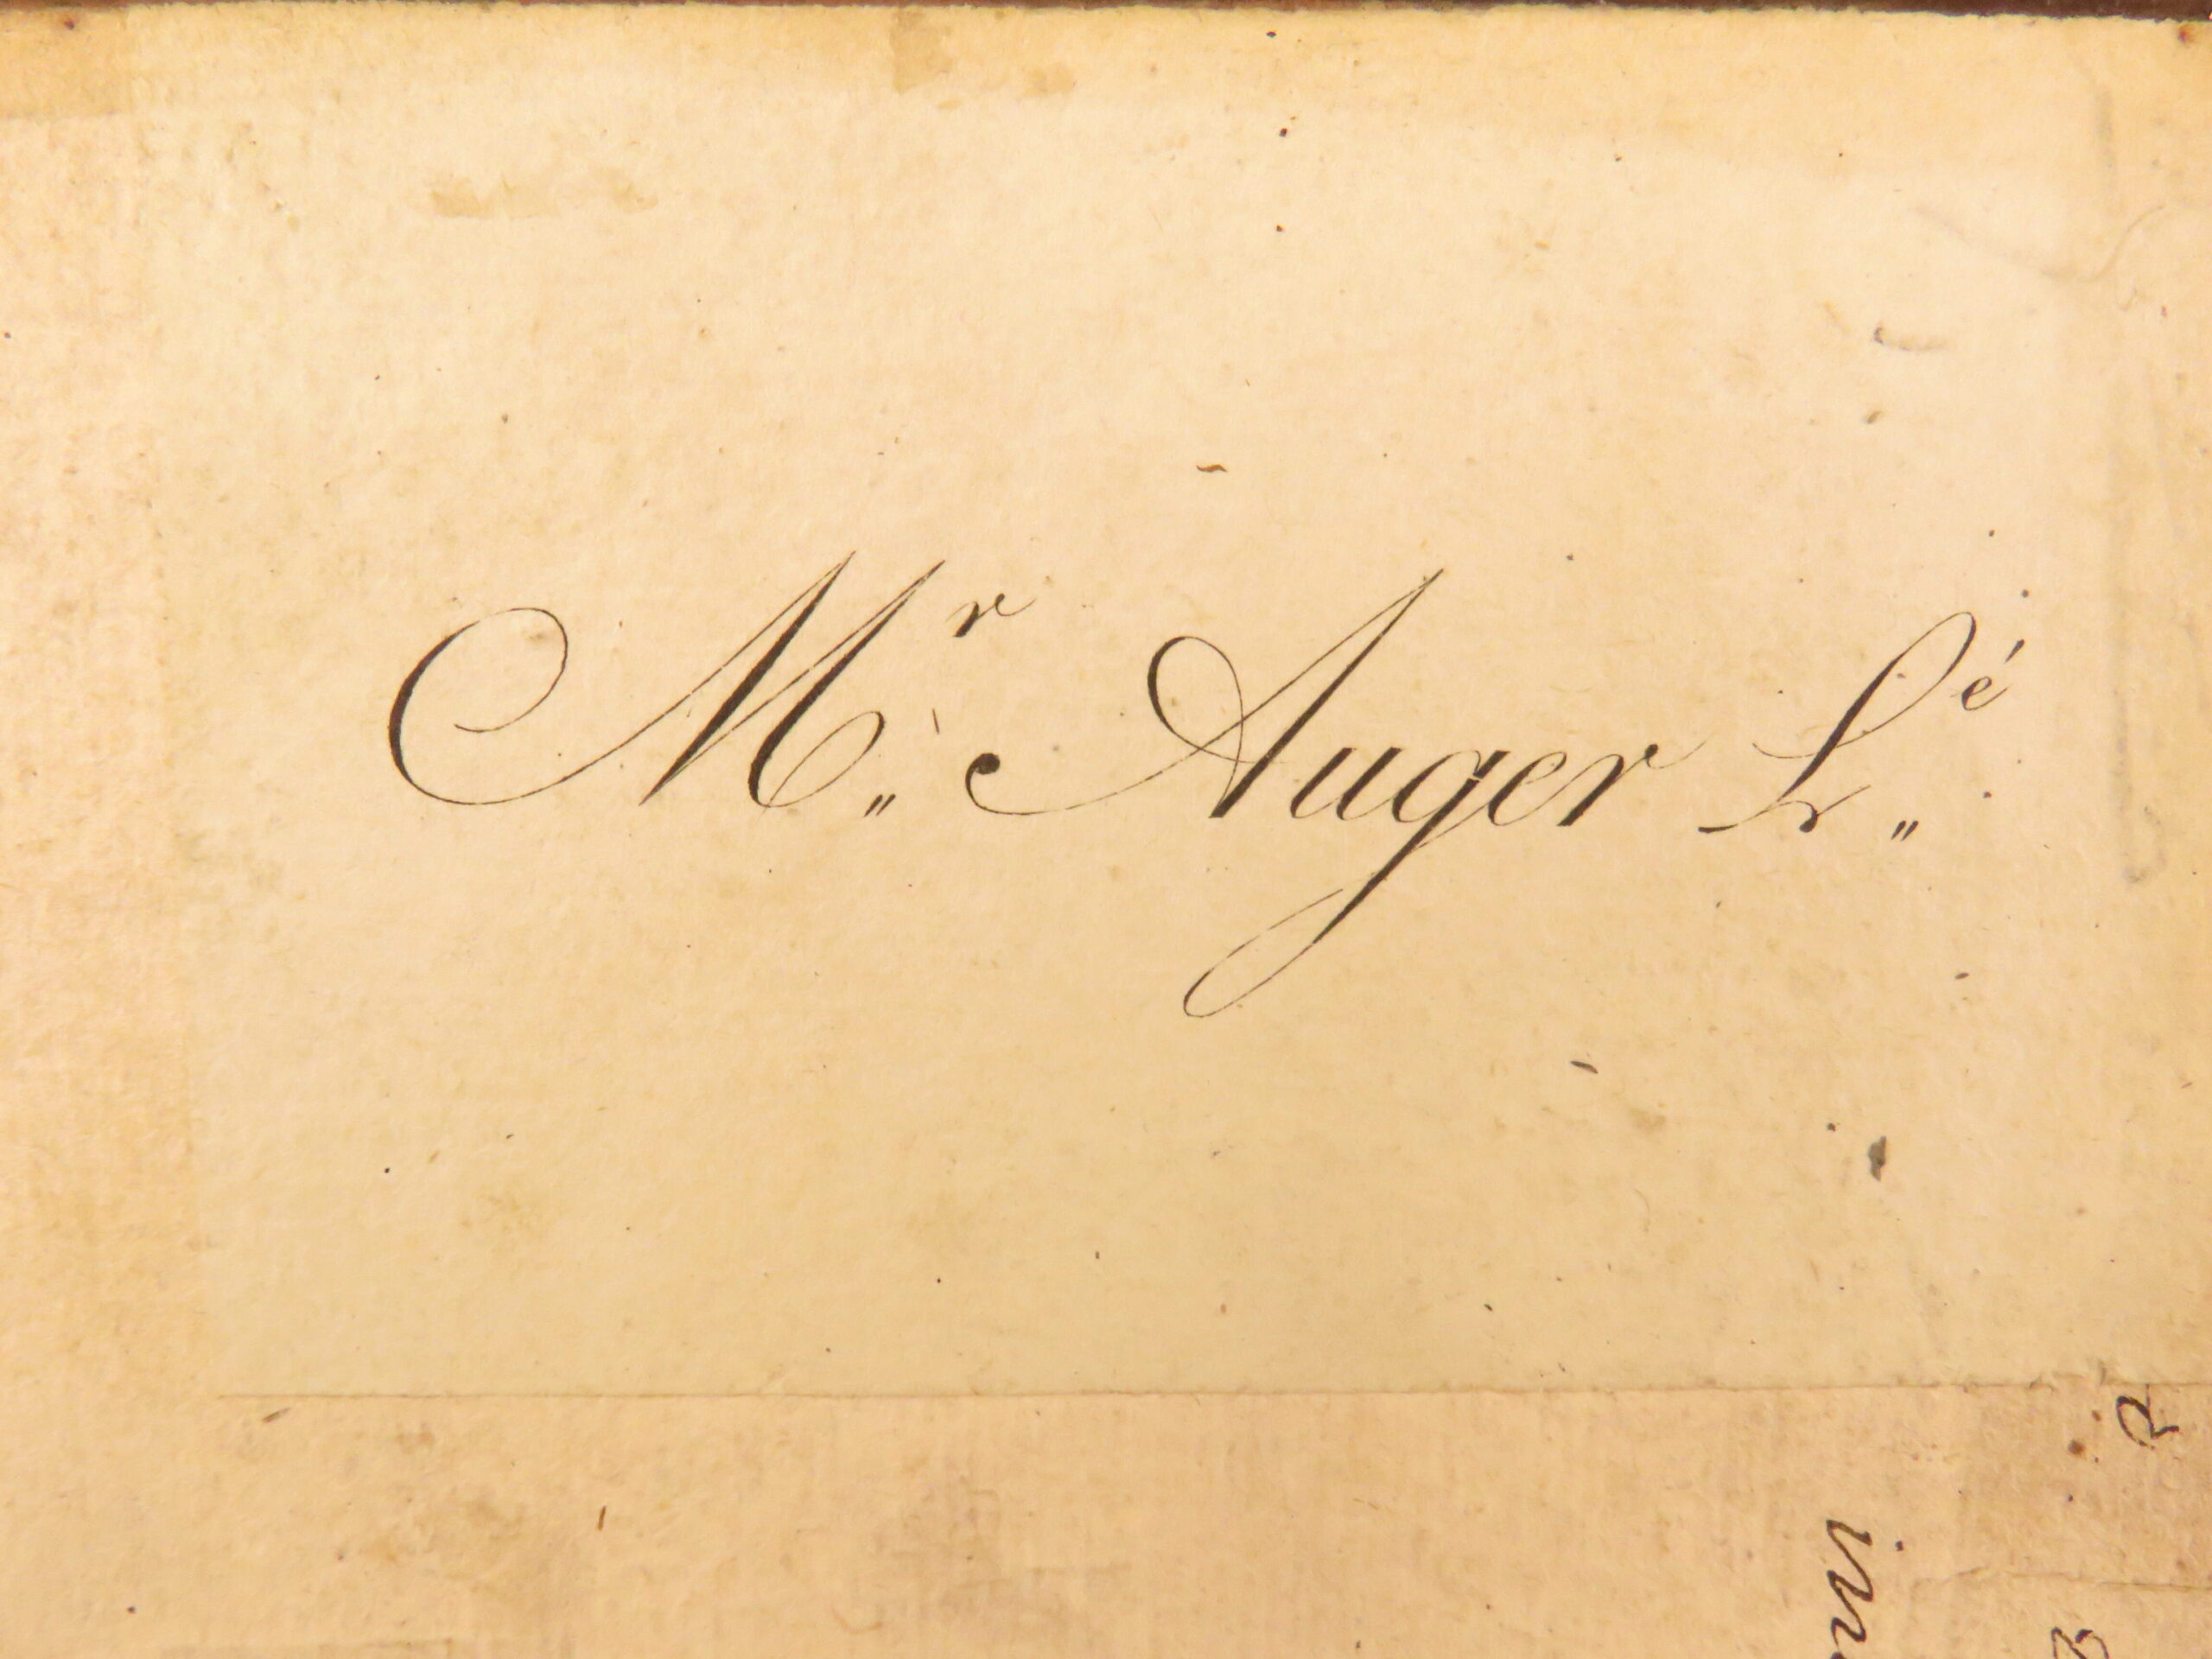 Mr. Auger Lé